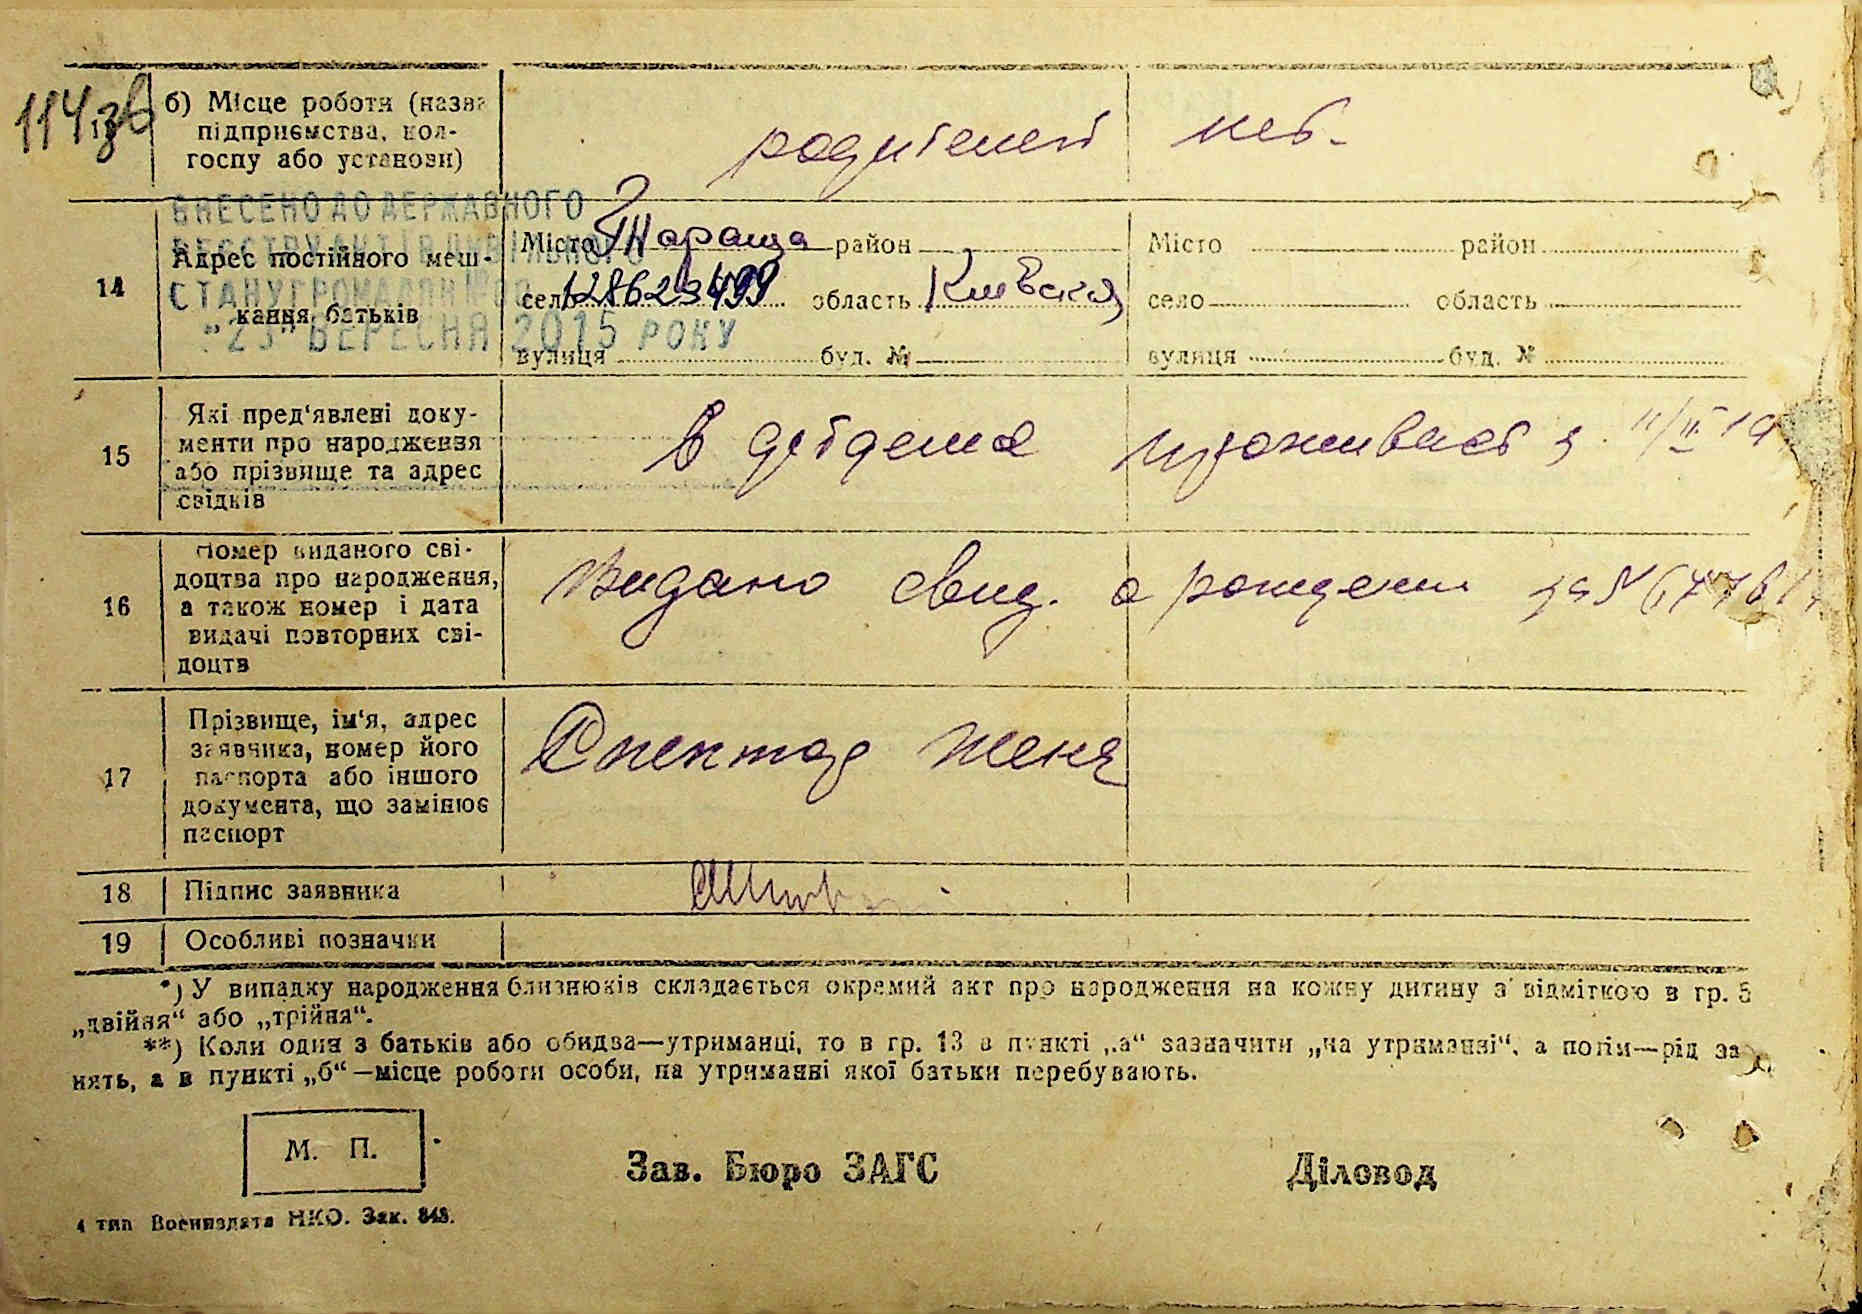 114 зв
б) Місце роботи (назва
підприємства, кол-
госпу або установи)
родителей нет.
ВНЕСЕНО ДО ДЕРЖАВНОГО
РЕЄСТРУ АКТІВ ЦИВІЛЬНОГО
СТАНУ ГРОМАДЯН №00
"23" ВЕРЕСНЯ 2015 РОКУ
14
Адрес постійного меш-
кання батьків
Місто Тараща район
село 128623499 область Киевская
вулиця буд. №
Місто район
село область
вулиця буд. №
15
Які пред'явлені доку-
менти про народження
або прізвище та адрес
свідків
в детдоме проживает з 11/II 19
16
Номер виданого сві-
доцтва про народження,
а також номер і дата
видачі повторних сві-
доцтв
Видано свид. о рождении за №
17
Прізвище, ім'я, адрес
заявника, номер його
паспорта або іншого
документа, що замінює
паспорт
Спектор Женя
18
Підпис заявника
19
Особливі позначки
*) У випадку народження близнюків складається окремий акт про народження на кожну дитину з відміткою в гр. 5
„двійня“ або „трійня“.
**) Коли один з батьків або обидва—утриманці, то в гр. 13 в пункті „а“ зазначити „на утриманні“, а потім—рід за
нять, а в пункті „б“—місце роботи особи, на утриманні якої батьки перебувають.
М. П.
Зав. Бюро ЗАГС
Діловод
4 тип Воениздата НКО. Зак. 843.